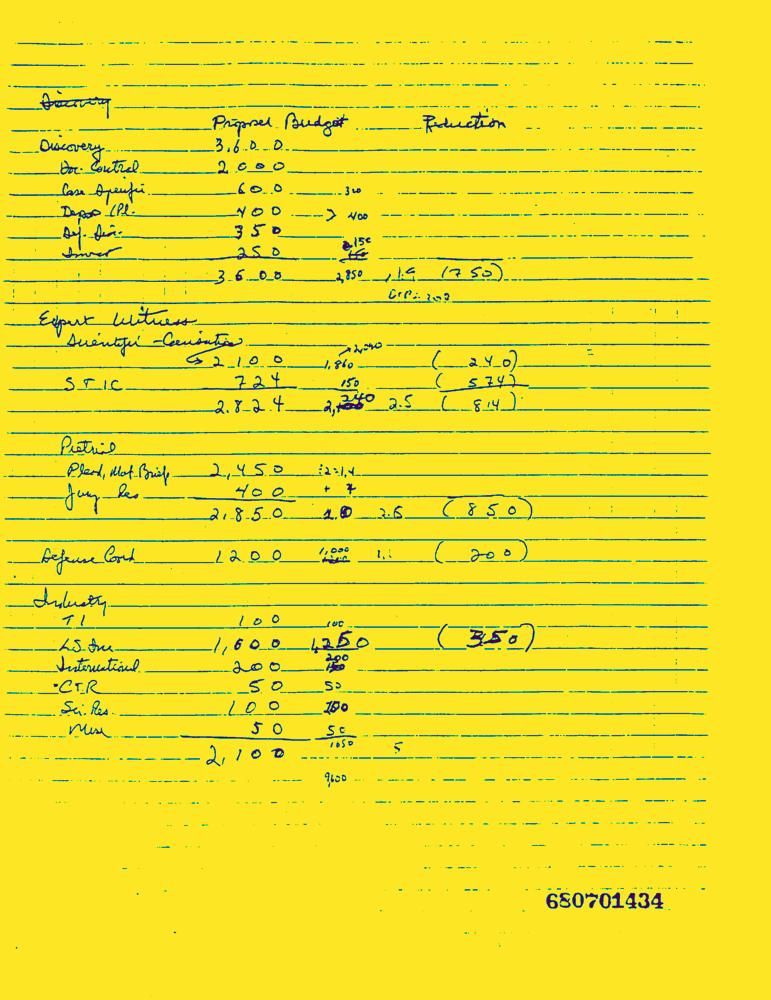 Discovery
Proposed Budget Reduction
Discovery 3,600
Doc. Control 2000
Case Specific 600 300
Depos / Pl. 400 > 400
Def. Dis. 350 2,150
250
3600 2,850 1.9 (750)
Expert Witness
Scientific - Causation 2,090
2100 1,860 (240)
STIC 724 150 (574)
2,824 2,240 2.5 (814)
Pretrial
Plead, Mot Brief 2,450
Jury Res 400
2,850 2.6 (850)
Defense Coord 1200 1,000 1.1 (200)
Industry
TI 100 100
LS Inc 1,600 1,250 (350)
International 200 200
CTR 50 50
Sci. Res. 100 100
Misc 50 50
2,100 1050 5
9600
680701434